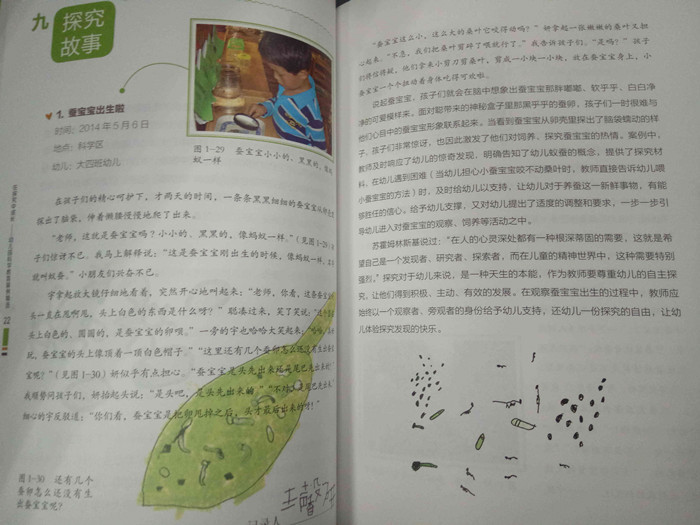 九 探究
故事
1. 蚕宝宝出生啦
时间：2014年5月6日
地点：科学区
幼儿：大四班幼儿
图1-29 蚕宝宝小小的、黑黑的，像蚂
蚁一样
在孩子们的精心呵护下，才两天的时间，一条条黑黑细细的蚕宝宝从
探出了脑袋，伸着懒腰慢慢地爬了出来。
“老师，这就是蚕宝宝吗？小小的、黑黑的，像蚂蚁一样。”（见图1-29）
子们惊讶不已。我马上解释说：“这是蚕宝宝刚出生的时候，像蚂蚁一样，
能叫蚁蚕。”小朋友们兴奋不已。
宇拿起放大镜仔细地看着，突然开心地叫起来：“老师，你看，这条蚕宝
头一直在甩啊甩，头上白色的东西是什么呀？”聪凑过来，笑了笑说：“这个
头上白色的、圆圆的，是蚕宝宝的卵呗。”一旁的宇也哈哈大笑起来：
玩，蚕宝宝的头上像顶着一顶白色帽子。”“这里还有几个蚕卵怎么还没有生出来
宝呢？”（见图1-30）妍似乎有点担心。“蚕宝宝是头先出来还是尾巴先出来
我顺势问孩子们，妍抬起头说：“是头吧，是头先出来的。”“不对
细心的宇反驳道：“你们看，蚕宝宝是把卵甩掉之后，头才最后出来的呀！”
图1-30 还有几个
蚕卵怎么还没有生
出蚕宝宝呢？
22
“蚕宝宝这么小，这么大的桑叶它咬得动吗？”妍拿起一张嫩嫩的桑叶又担
心起来。“不急，我们把桑叶剪碎了喂就行了。”我告诉孩子们。“是吗？”孩子
们将信将疑，他们拿来小剪刀剪桑叶，剪成一小块一小块，放在蚕宝宝身上，小
蚕宝宝一个个扭动着身体吃得可欢啦。
说起蚕宝宝，孩子们就会在脑中想象出蚕宝宝那胖嘟嘟、软乎乎、白白净
净的可爱模样来。面对聪带来的神秘盒子里那黑乎乎的蚕卵，孩子们一时很难与
他们心目中的蚕宝宝形象联系起来。当看到蚕宝宝从卵壳里探出了脑袋蠕动的样
子，孩子们非常惊讶，也因此激发了他们对饲养、探究蚕宝宝的热情。案例中，
教师及时响应了幼儿的惊奇发现，明确告知了幼儿蚁蚕的概念，提供了探究材
料，在幼儿遇到困难（当幼儿担心小蚕宝宝咬不动桑叶时，教师直接告诉幼儿喂
小蚕宝宝的方法）时，及时给幼儿以支持，让幼儿对于养蚕这一新鲜事物，有能
够胜任的信心。给予幼儿支撑，又对幼儿提出了适度的调整和要求，一步一步引
导幼儿进入对蚕宝宝的观察、饲养等活动之中。
苏霍姆林斯基说过：“在人的心灵深处都有一种根深蒂固的需要，这就是希
望自己是一个发现者、研究者、探索者，而在儿童的精神世界中，这种需要特别
强烈。”探究对于幼儿来说，是一种天生的本能，作为教师要尊重幼儿的自主探
究，让他们得到积极、主动、有效的发展。在观察蚕宝宝出生的过程中，教师应
始终以一个观察者、旁观者的身份给予幼儿支持，还幼儿一份探究的自由，让幼
儿体验探究发现的快乐。